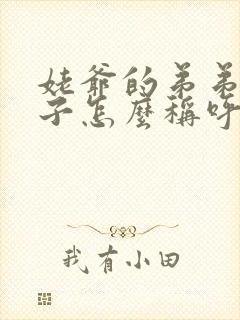 姥爺的弟弟
子怎麼稱呼
我有小田